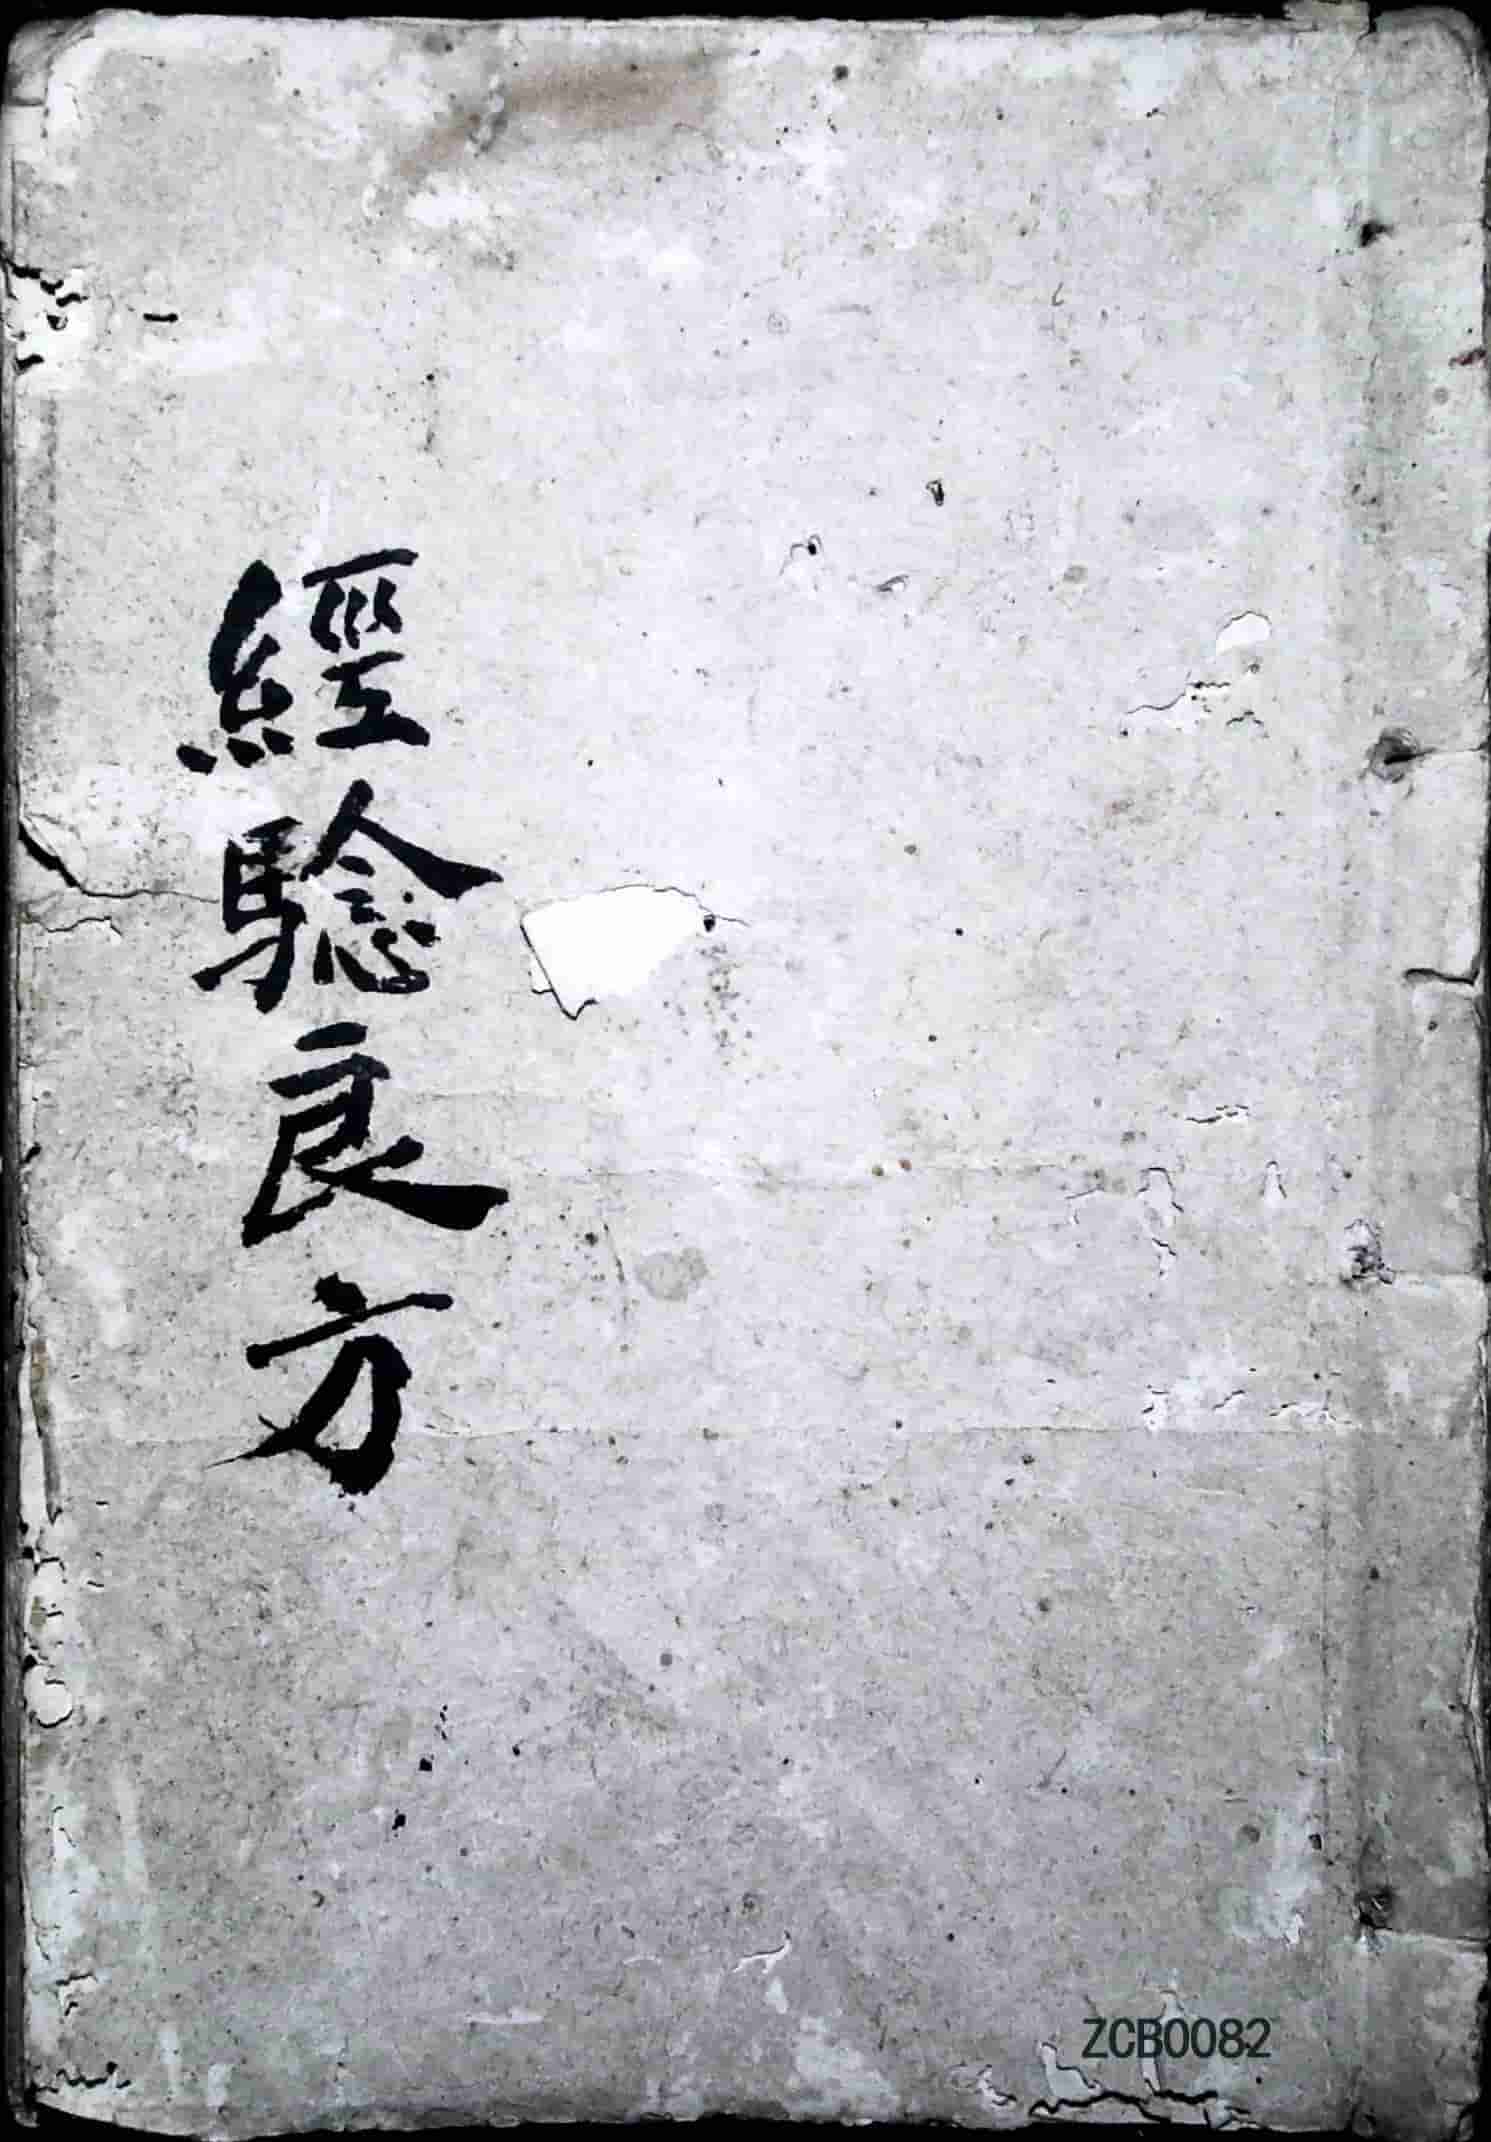 經騐良方
ZCB0082